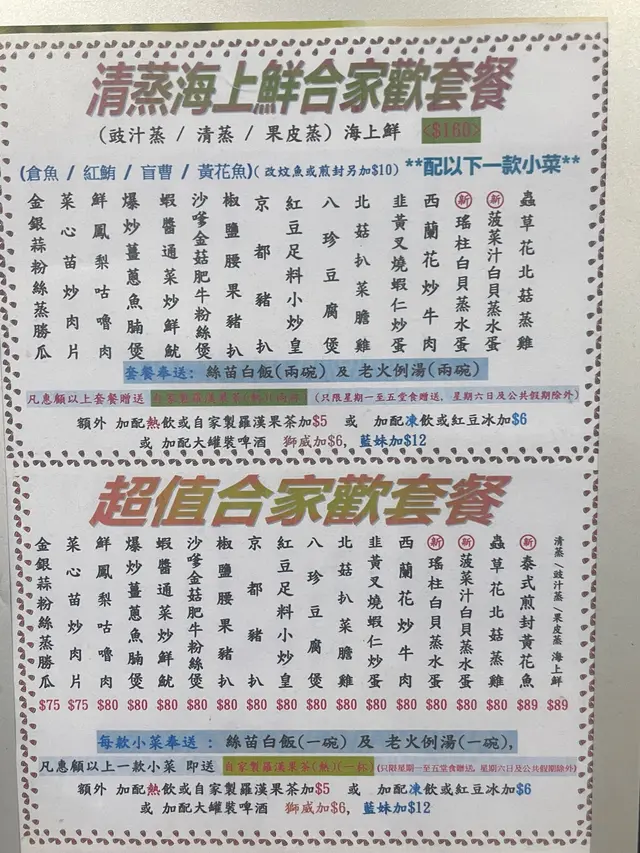 清蒸海上鮮合家歡套餐
(豉汁蒸 / 清蒸 / 果皮蒸) 海上鮮 <$160>
(倉魚 / 紅鮋 / 盲曹 / 黃花魚)(改炆魚或煎封另加$10) **配以下一款小菜**
金銀蒜粉絲蒸勝瓜
菜心苗炒肉片
鮮鳳梨咕嚕肉
爆炒薑蔥魚腩煲
蝦醬通菜炒鮮魷
沙嗲金菇肥牛粉絲煲
椒鹽腰果豬扒
京都豬扒
紅豆足料小炒皇
八珍豆腐煲
北菇扒菜膽雞
韭黃叉燒蝦仁炒蛋
西蘭花炒牛肉
新 瑤柱白貝蒸水蛋
新 菠菜汁白貝蒸水蛋
蟲草花北菇蒸雞
套餐奉送 : 絲苗白飯(兩碗) 及 老火例湯(兩碗)
凡惠顧以上套餐贈送 自家製羅漢果茶(熱)(兩杯) (只限星期一至五堂食贈送, 星期六日及公共假期除外)
額外 加配熱飲或自家製羅漢果茶加$5 或 加配凍飲或紅豆冰加$6
或 加配大罐裝啤酒 獅威加$6, 藍妹加$12
超值合家歡套餐
金銀蒜粉絲蒸勝瓜 $75
菜心苗炒肉片 $75
鮮鳳梨咕嚕肉 $80
爆炒薑蔥魚腩煲 $80
蝦醬通菜炒鮮魷 $80
沙嗲金菇肥牛粉絲煲 $80
椒鹽腰果豬扒 $80
京都豬扒 $80
紅豆足料小炒皇 $80
八珍豆腐煲 $80
北菇扒菜膽雞 $80
韭黃叉燒蝦仁炒蛋 $80
西蘭花炒牛肉 $80
新 瑤柱白貝蒸水蛋 $80
新 菠菜汁白貝蒸水蛋 $80
蟲草花北菇蒸雞 $80
新 泰式煎封黃花魚 $89
清蒸/豉汁蒸/果皮蒸 海上鮮 $89
每款小菜奉送 : 絲苗白飯(一碗) 及 老火例湯(一碗),
凡惠顧以上一款小菜 即送 自家製羅漢果茶(熱)(一杯) (只限星期一至五堂食贈送, 星期六日及公共假期除外)
額外 加配熱飲或自家製羅漢果茶加$5 或 加配凍飲或紅豆冰加$6
或 加配大罐裝啤酒 獅威加$6, 藍妹加$12